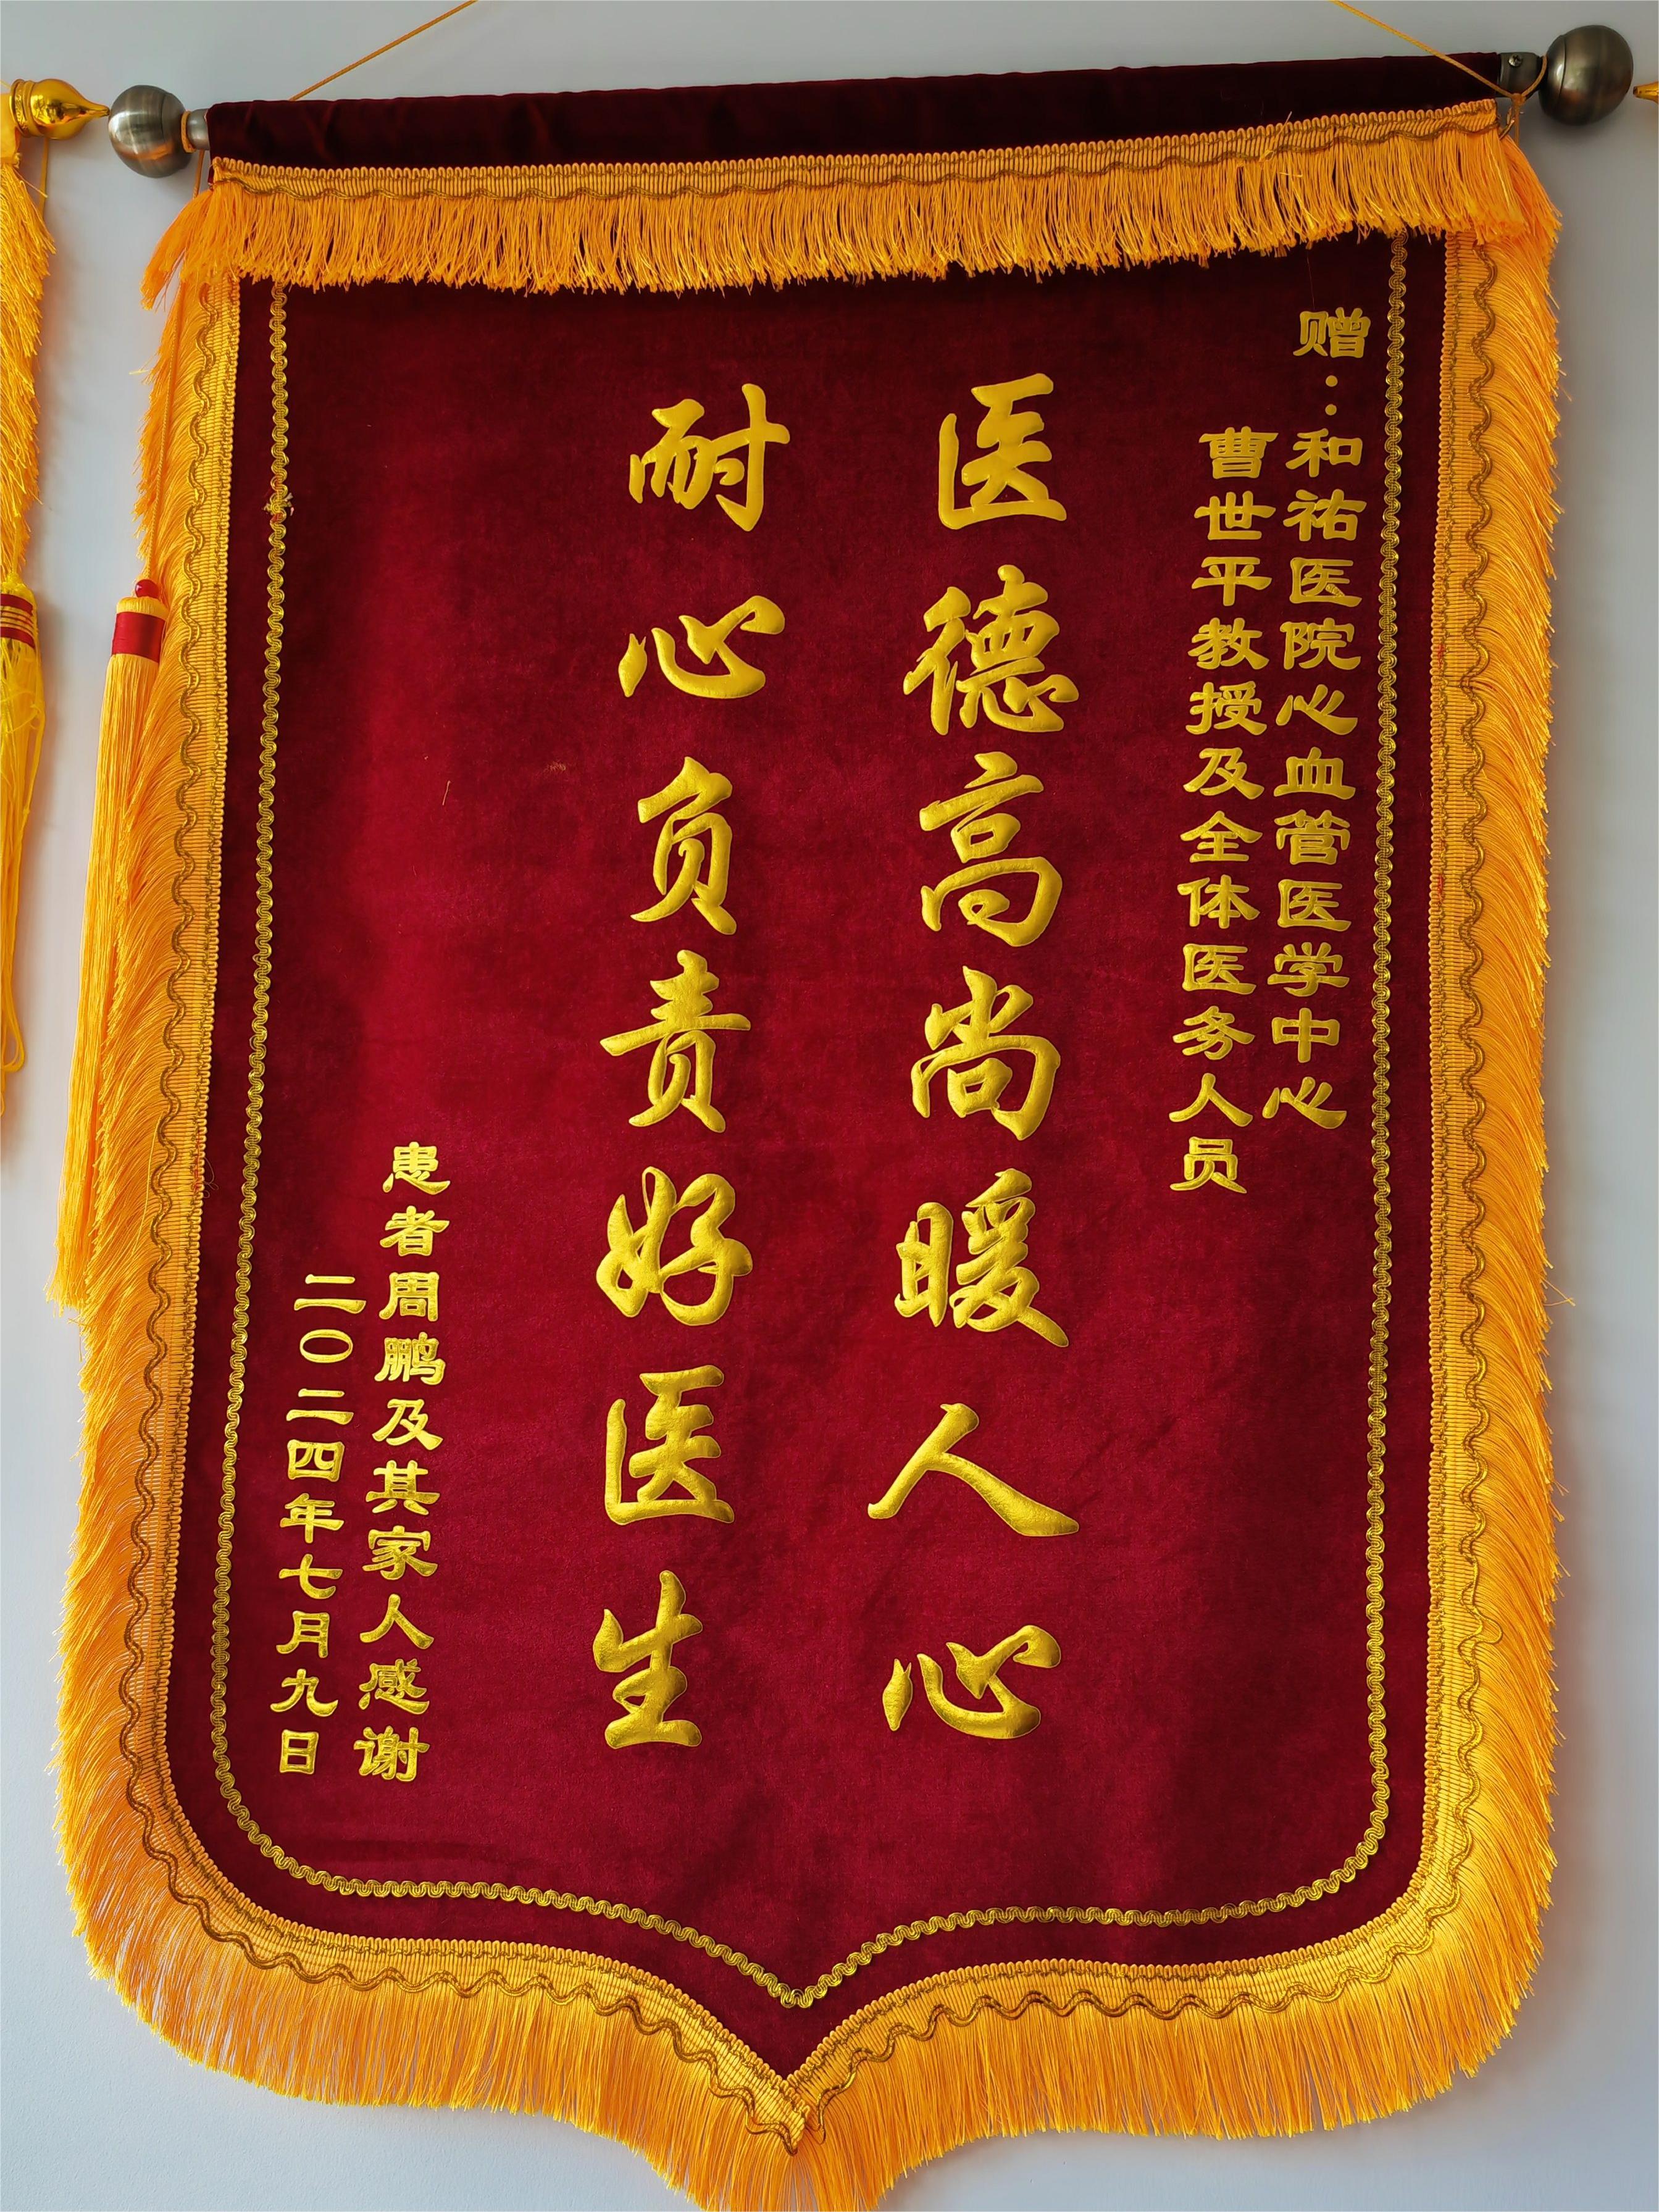 赠：和祐医院心血管医学中心
曹世平教授及全体医务人员
医德高尚暖人心
耐心负责好医生
患者周鹏及其家人感谢
二〇二四年七月九日